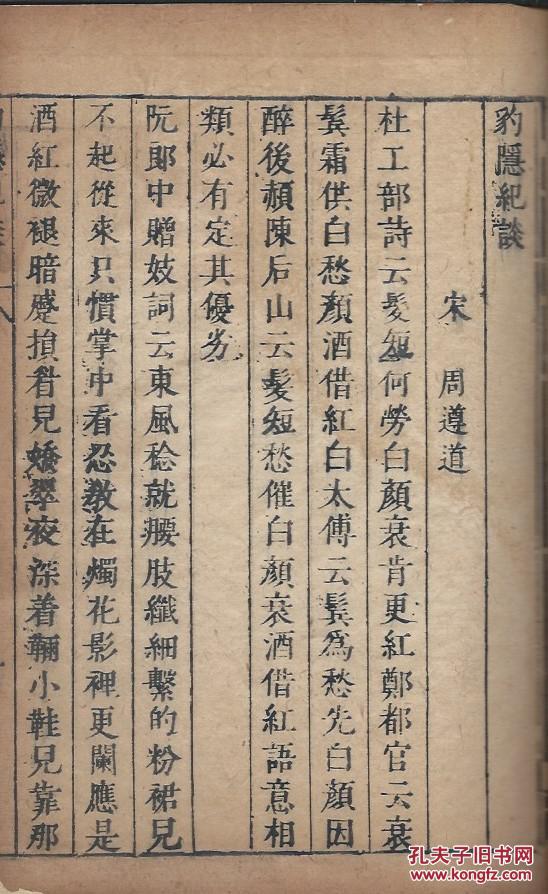 豹隱紀談
宋　周遵道
杜工部詩云髮短何勞白顏衰肯更紅鄭都官云衰
鬂霜供白愁顏酒借紅白太傅云鬂為愁先白顏因
醉後頳陳后山云髮短愁催白顏衰酒借紅語意相
類必有定其優劣
阮郎中贈妓詞云東風稔就腰肢纖細繫的粉裙兒
不起從來只慣掌中看忍教在燭花影裡更闌應是
酒紅微褪暗蹙損眉兒嬌翠夜深着緉小鞋兒靠那
孔夫子旧书网
kongfz.com